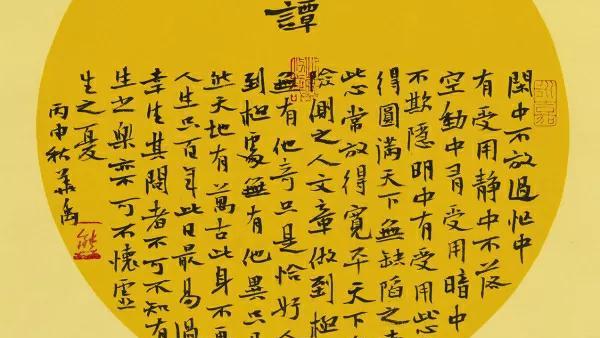 譚
閑中不放過忙中
有受用静中不落
空動中有受用暗中
不欺隱明中有受用此
得圓滿天下無缺陷之
此心常放得寬平天下
險側之人文章做到極
無有他奇只是恰好人
到極處無有他異只
然天地有萬古此身不再
人生只百年此日最易過
幸生其間者不可不知有
生之樂亦不可不懷虛
生之憂
丙申秋